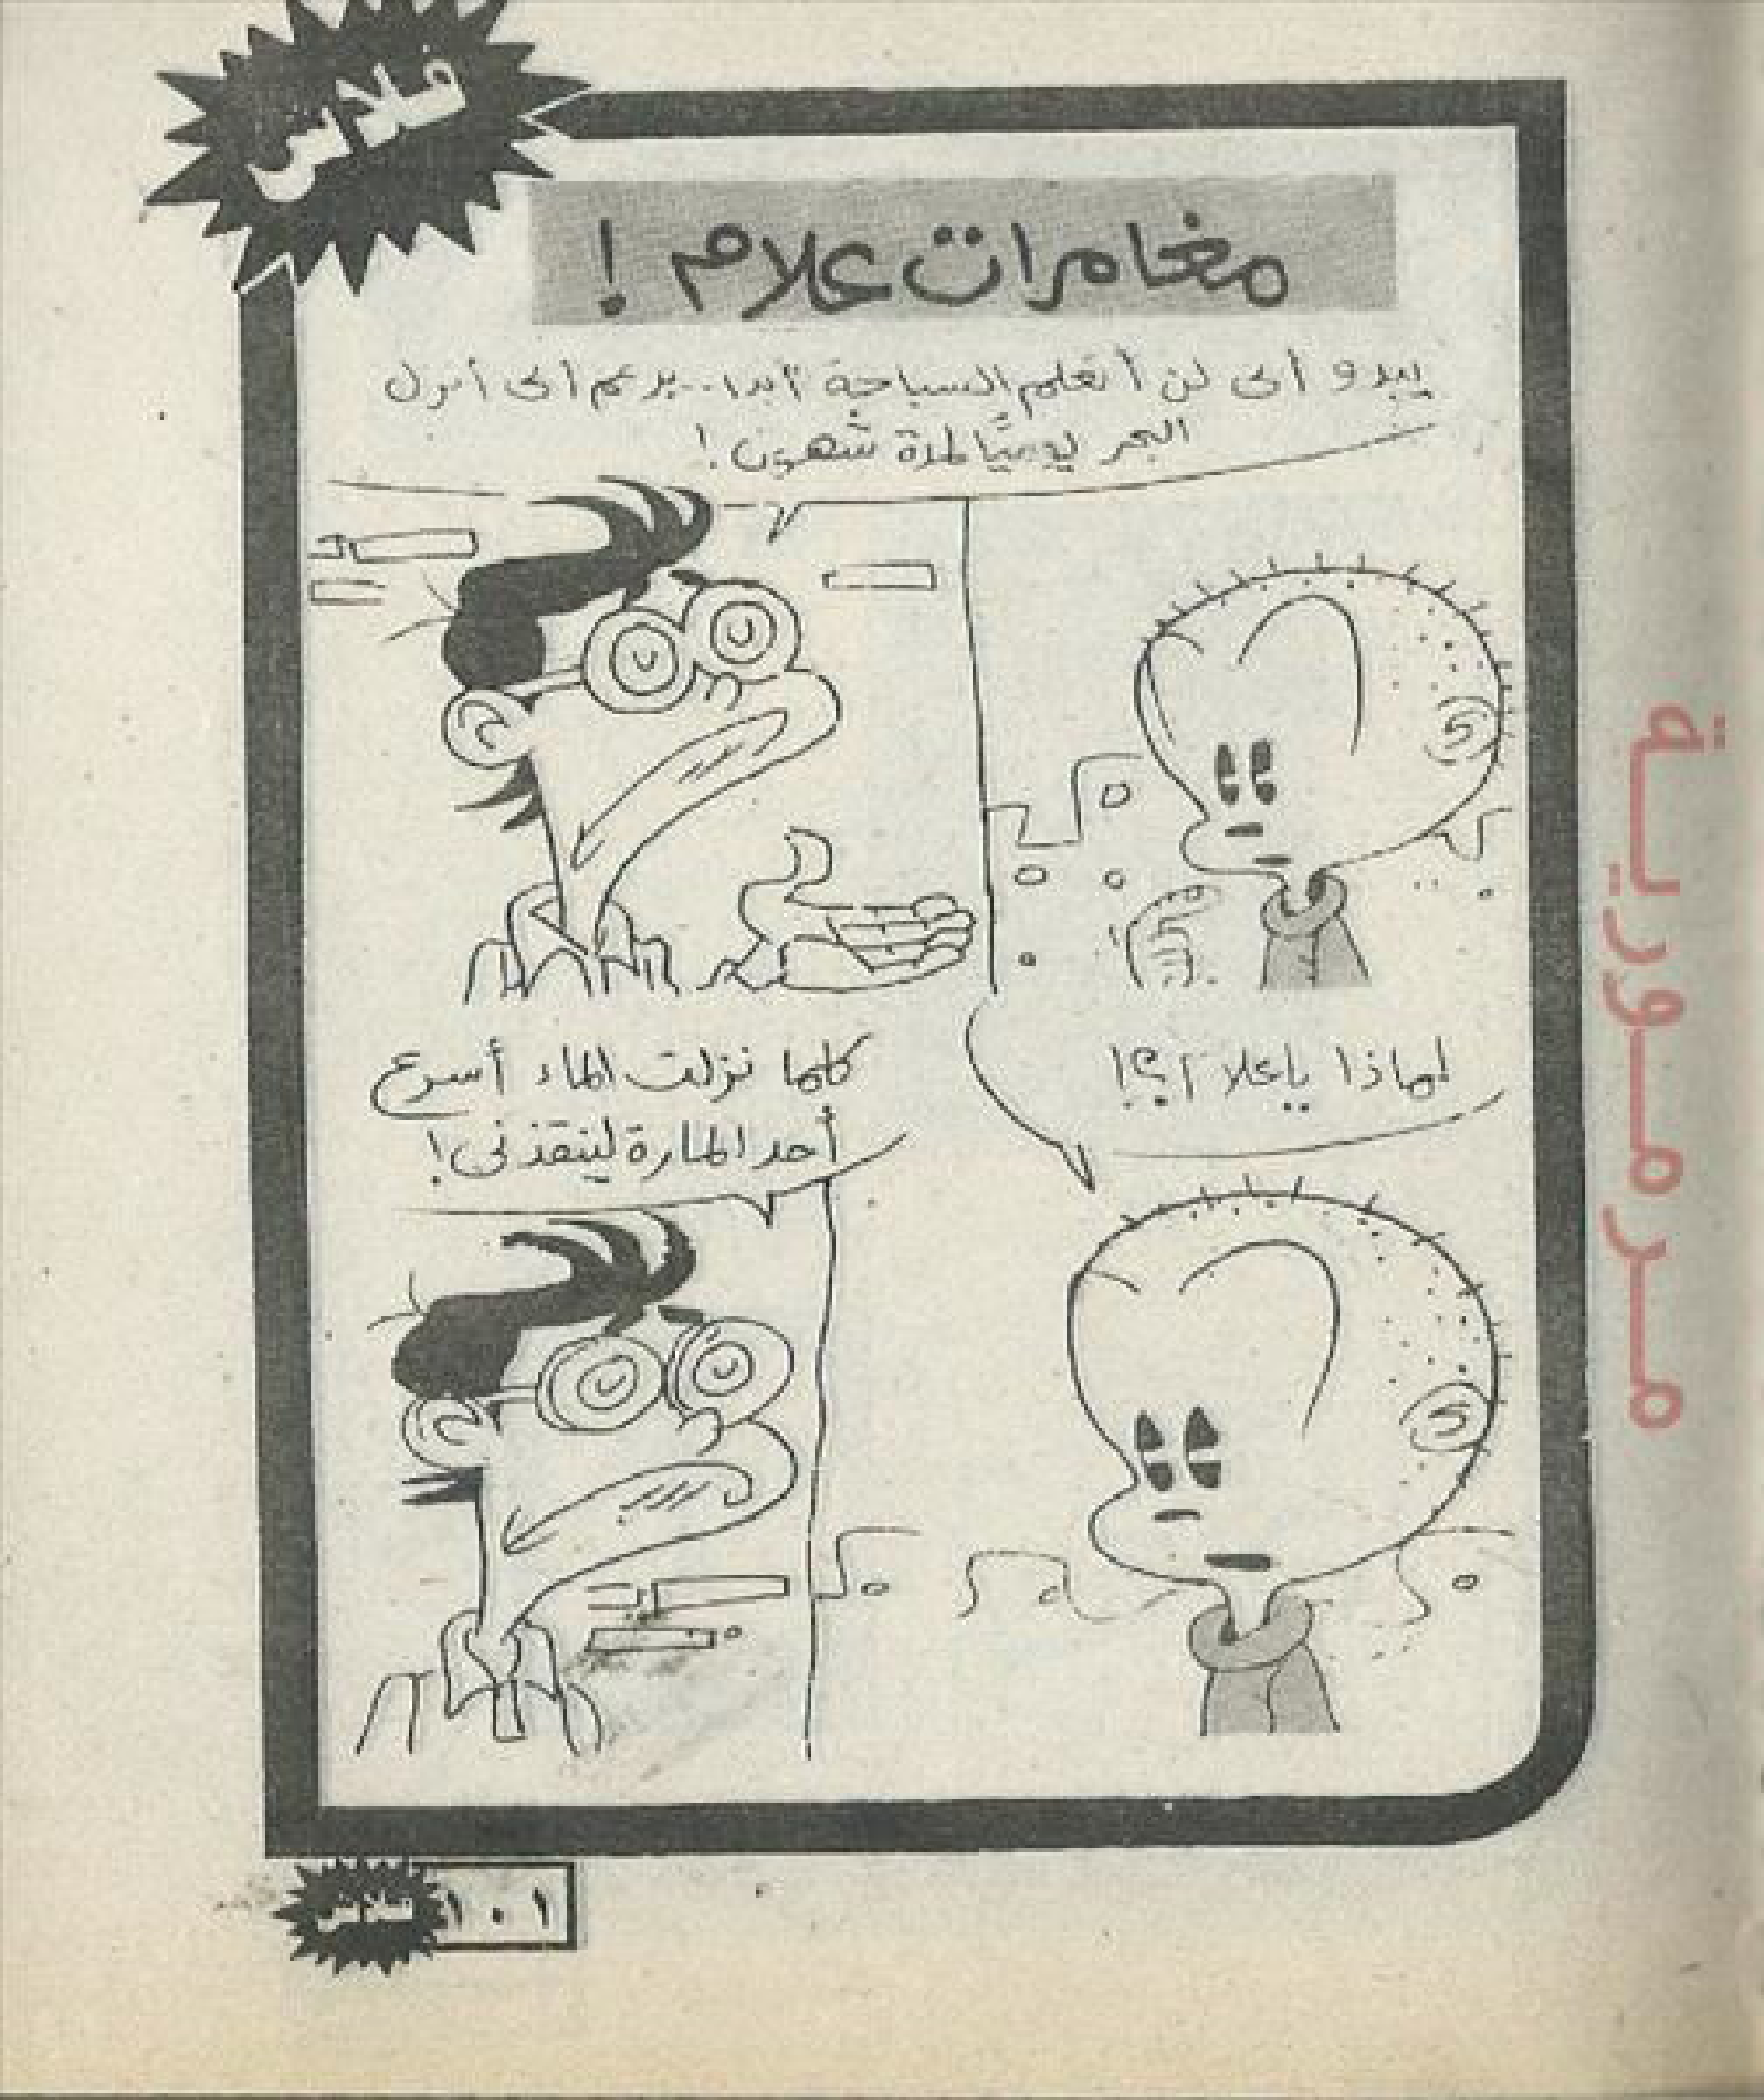 فلاش
مغامرات علام !
يبدو أنى لن أتعلم السباحة أبدا.. برغم أنى أنزل
البحر يوميًا لمدة شهرين !
لماذا يا علام ؟!
كلما نزلت الماء أسرع
أحد المارة لينقذنى !
مرمورية
فلاش
١٠١